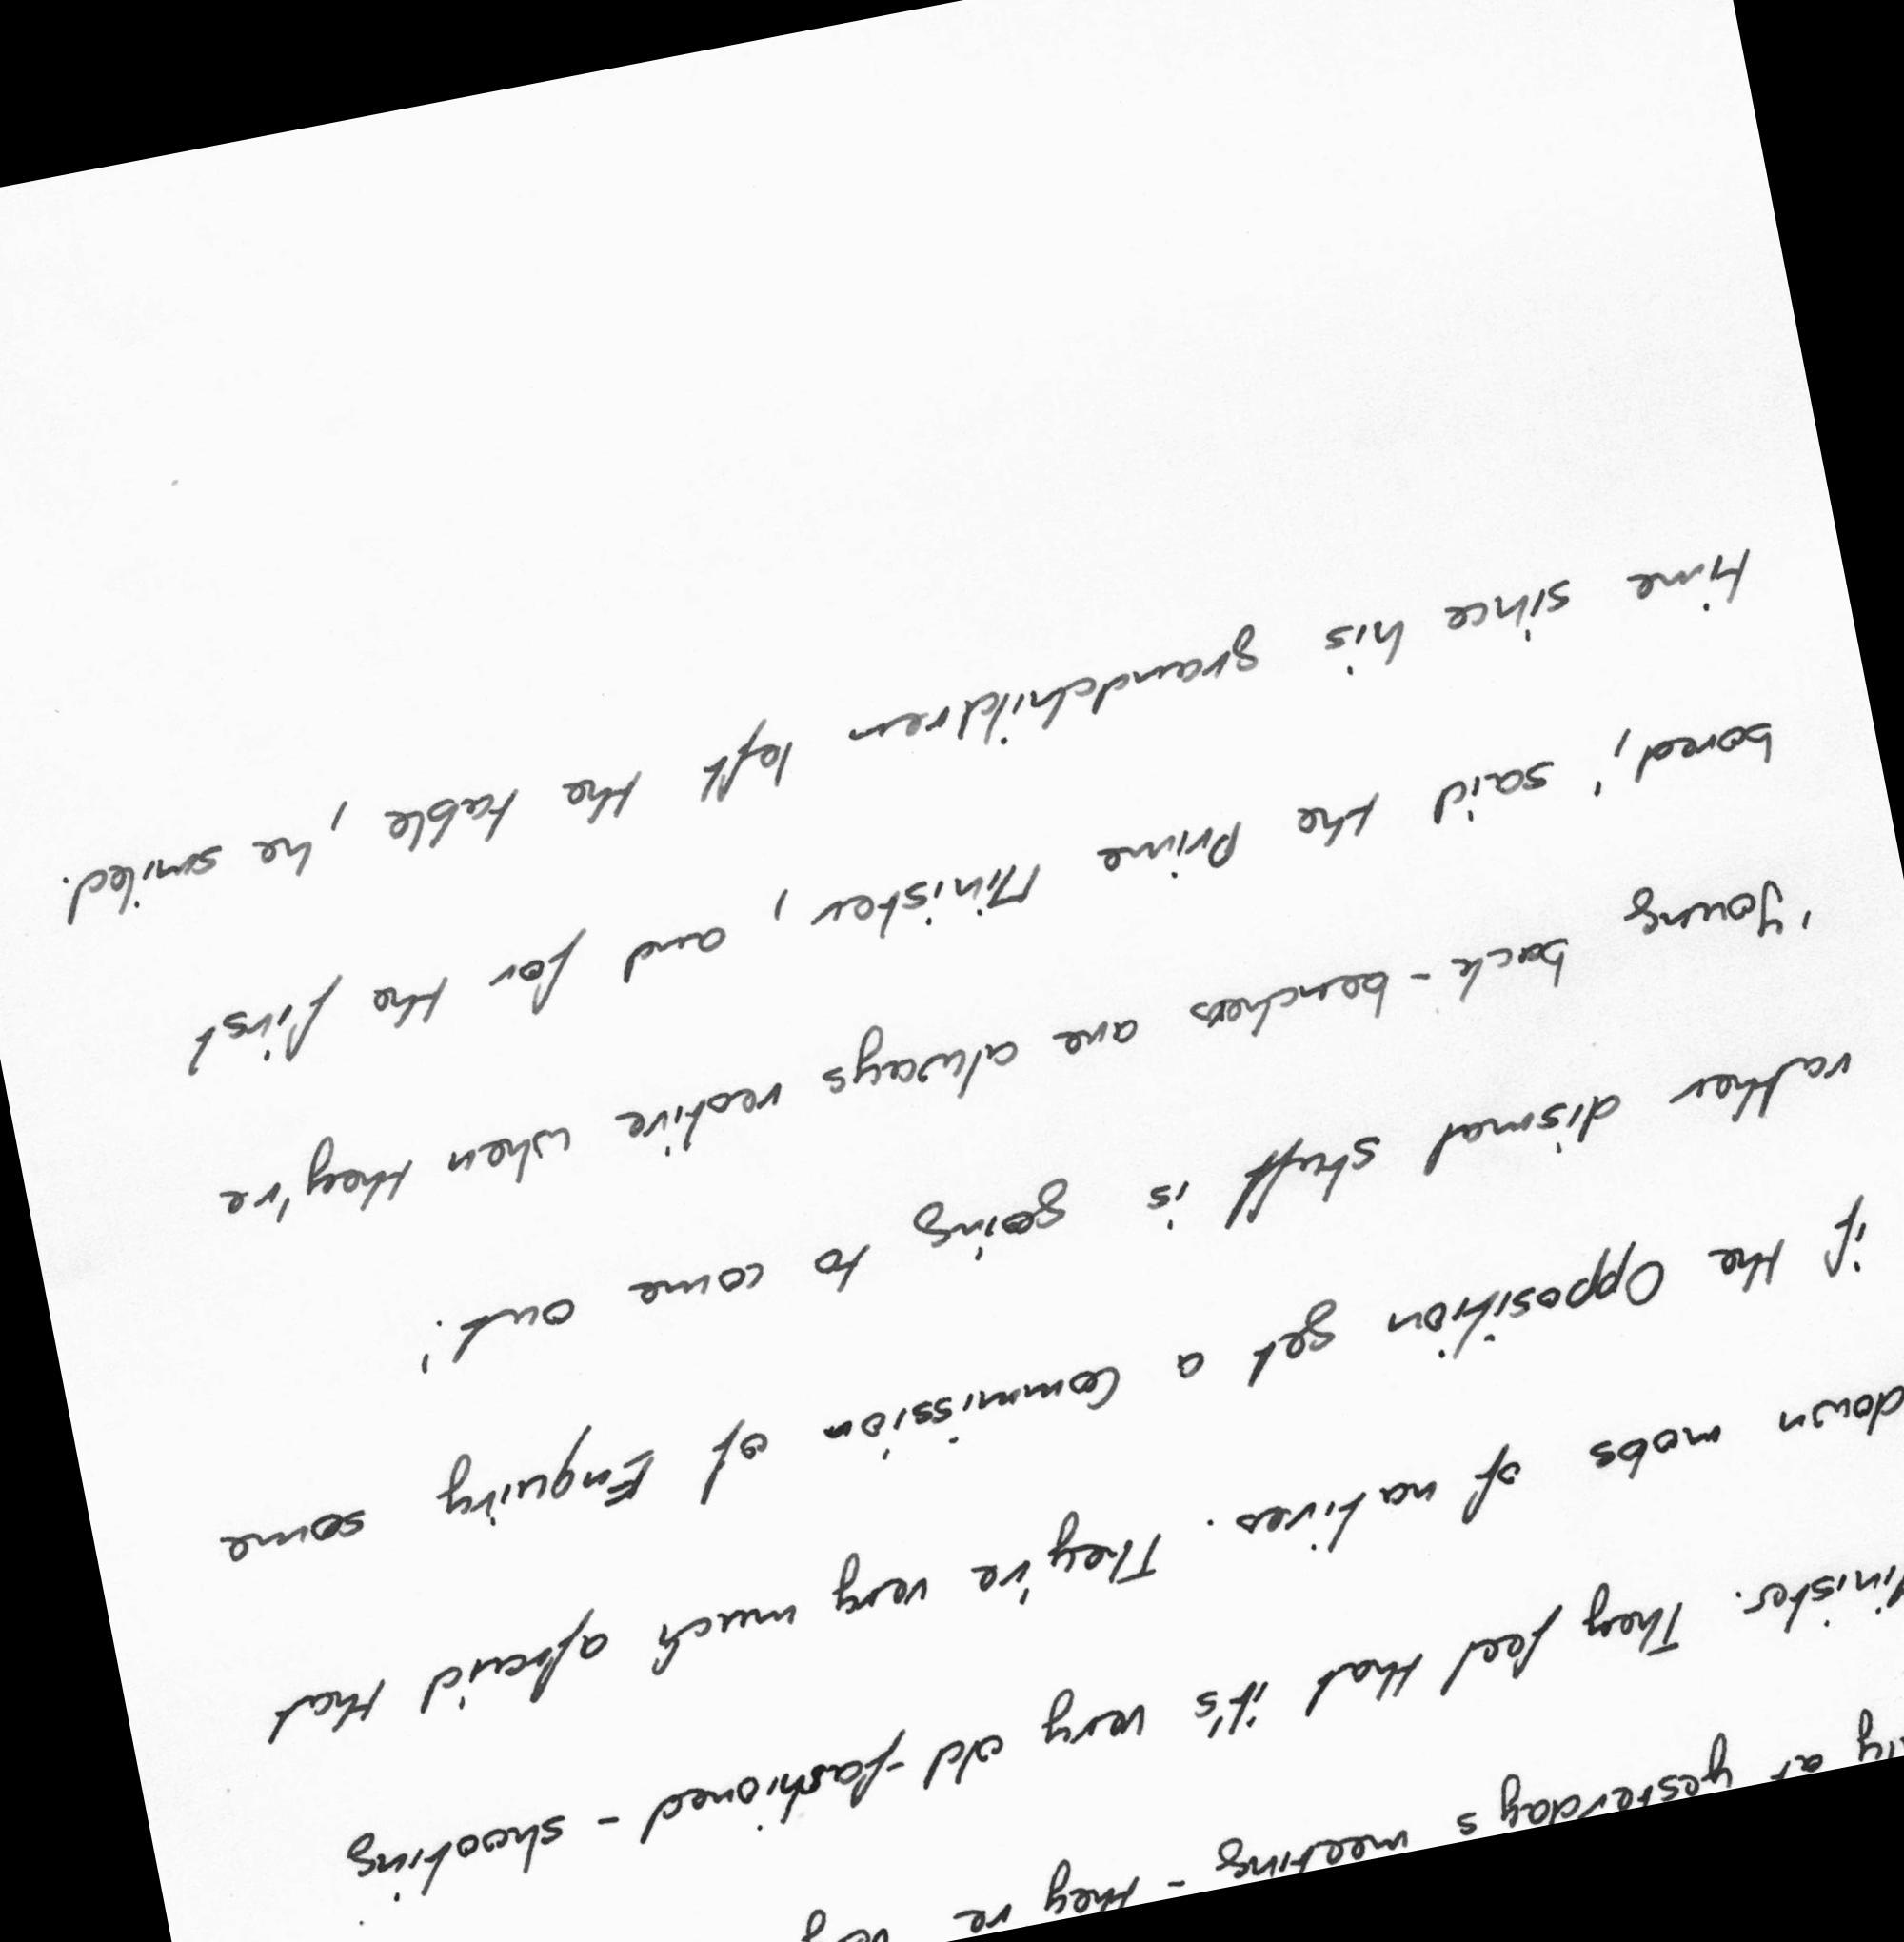 at yesterday's meeting - they're
They feel that it's very old-fashioned - shooting
down mobs of natives. They're very much afraid that
if the Opposition get a Commission of Enquiry some
rather dismal stuff is going to come out.'
'Young back-benchers are always restive when they're
bored,' said the Prime Minister, and for the first
time since his grandchildren left the table, he smiled.